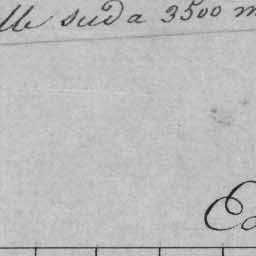 lle sud a 3500 m